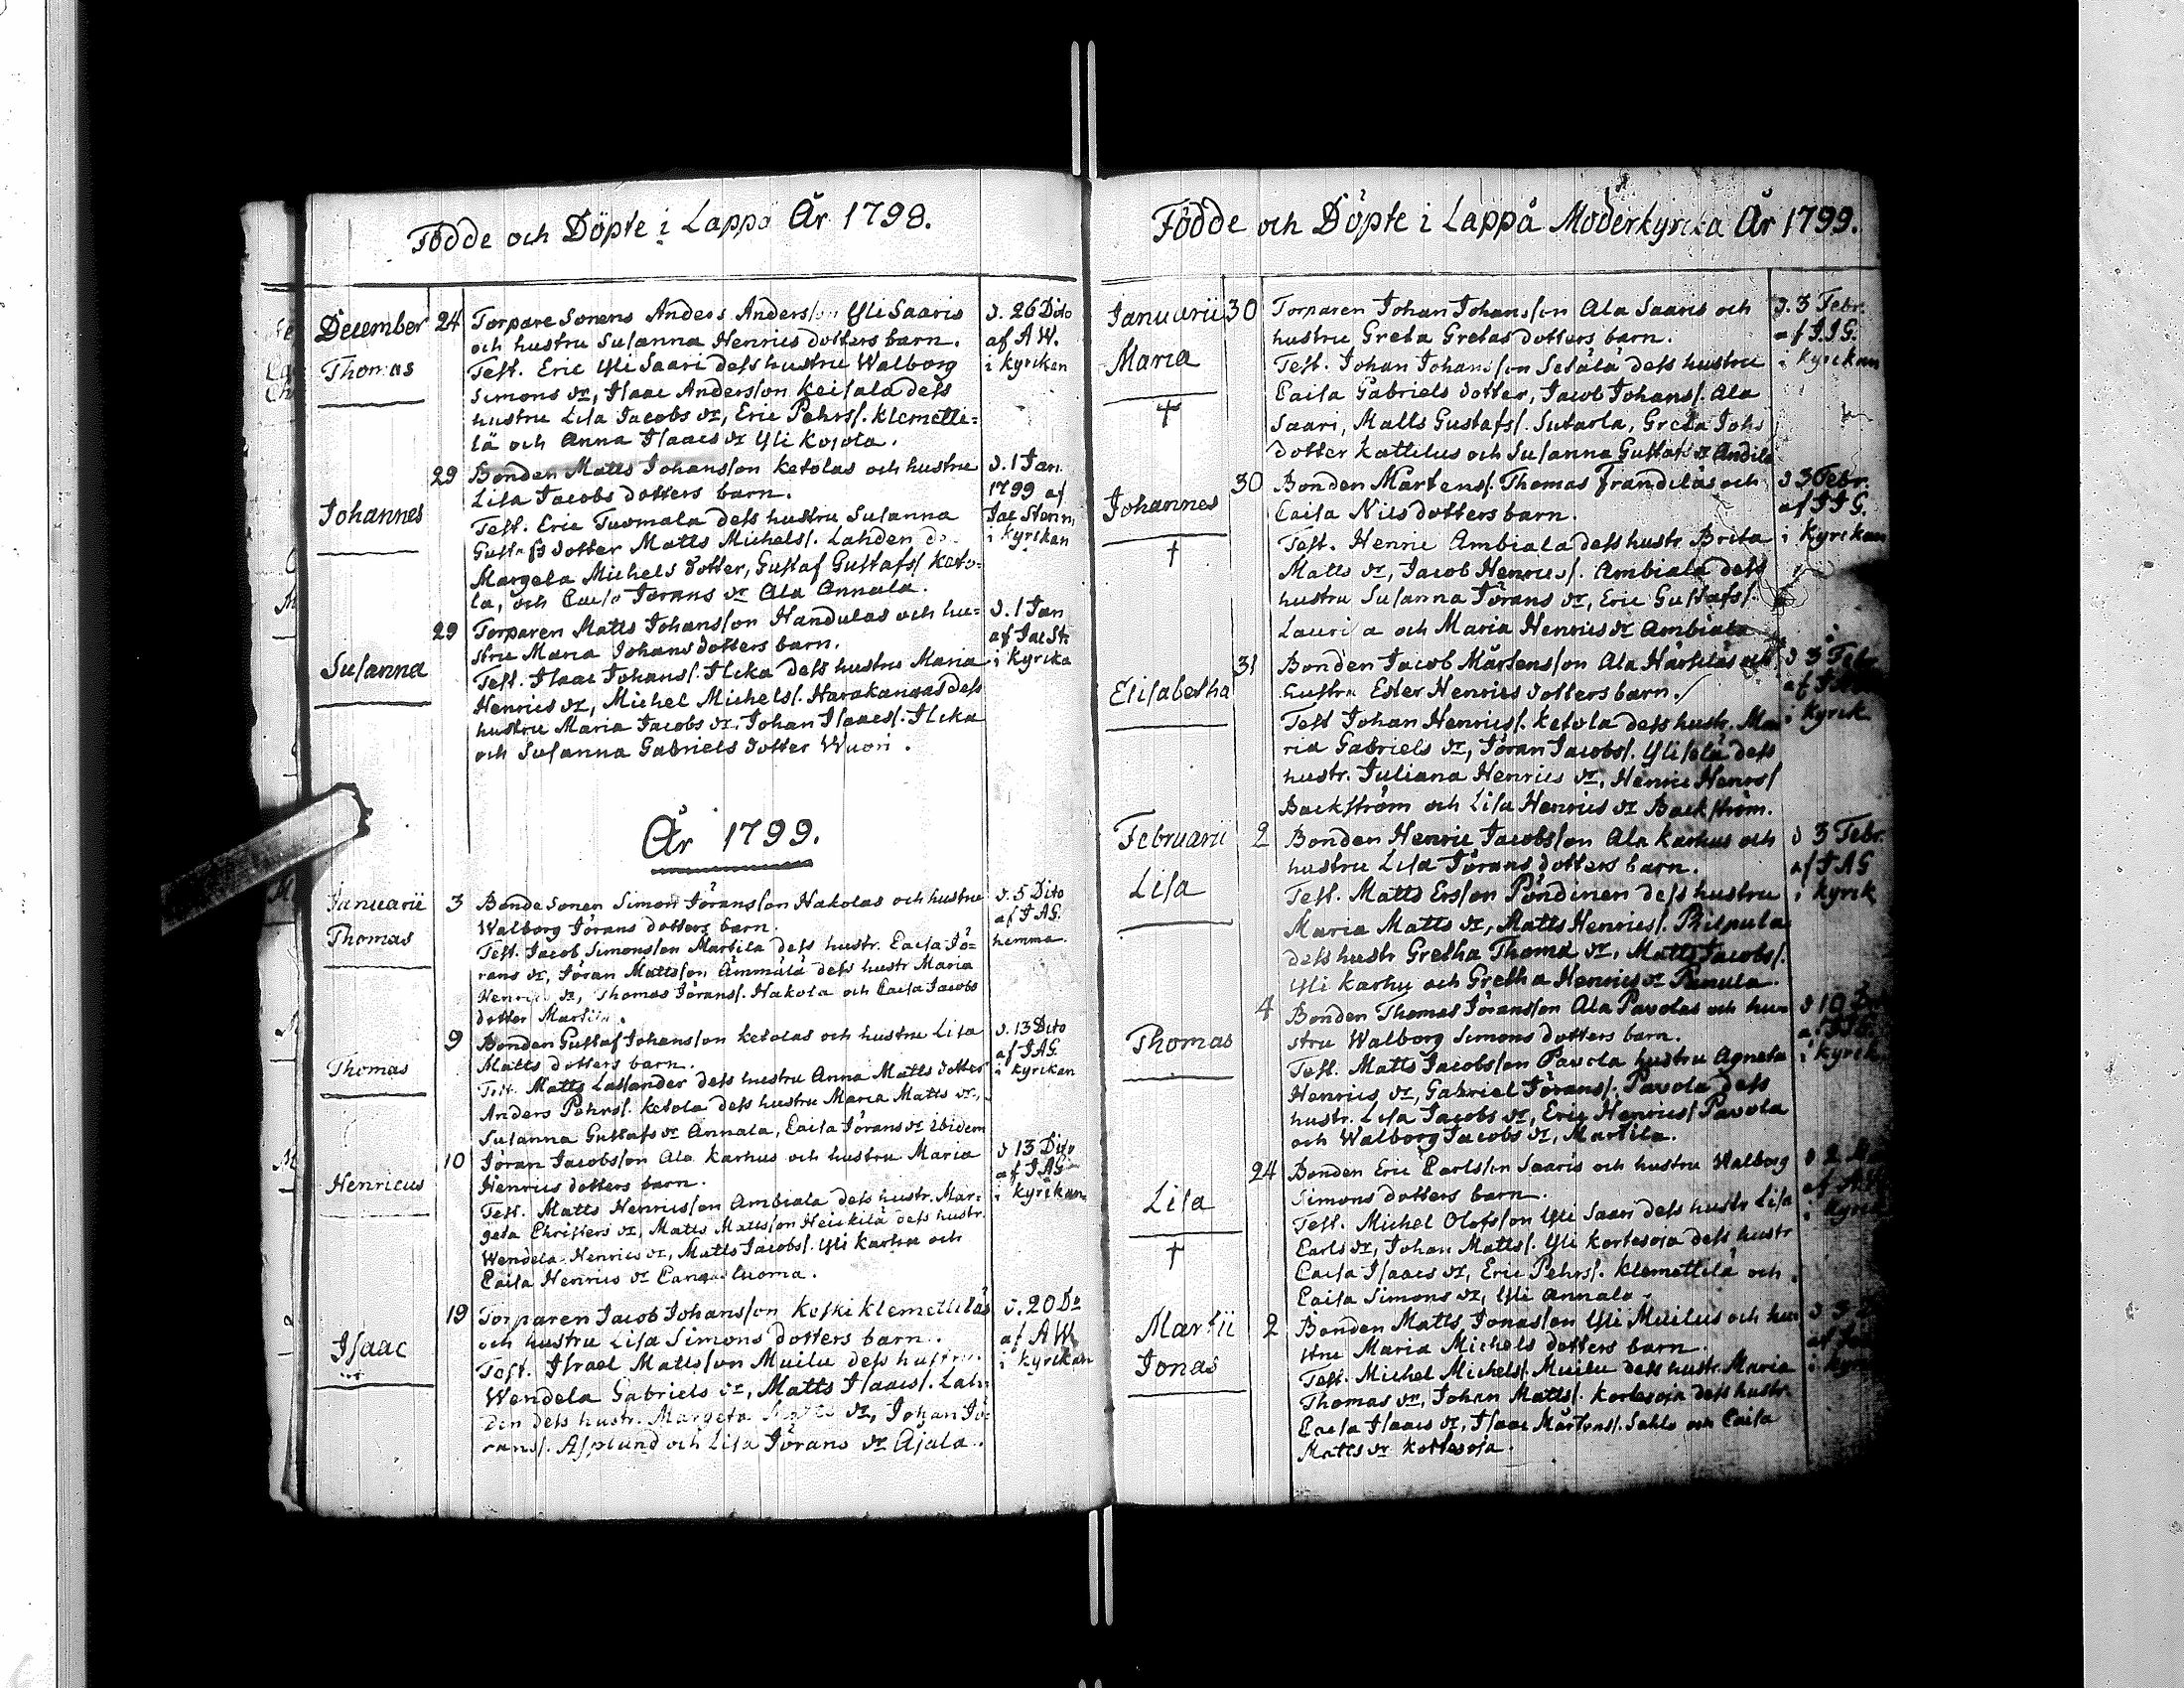 Födde och Döpte i Lappo År 1798.
December 24 Torpare Sonens Anders Andersson Yli Saaris d. 26 Dito
och hustru Susanna Henrics dotters barn. af A W.
Thomas Test. Eric Yli Saari dess hustru Walborg i kyrckan
Simons dr, Isaac Andersson Keisala dess
hustru Lisa Jacobs dr, Eric Pehrss. Klemetti-
lä och Anna Isaacs dr Yli Kojola.
29 Bonden Matts Johansson Ketolas och hustru d. 1 Jan.
Lisa Jacobs dotters barn. 1799 af
Johannes Test. Eric Tuomala dess hustru Susanna Jac Stenm.
Gustafs dotter Matts Michelss. Lahden i kyrckan
Margeta Michels dotter, Gustaf Gustafss. Keto-
la, och Caisa Jörans dr Ala Annala.
29 Torparen Matts Johansson Handulas och hu- d. 1 Jan
stru Maria Johans dotters barn. af Jac St.
Susanna Test. Isaac Johanss. Ilcka dess hustru Maria i kyrcka
Henrics dr, Michel Michelss. Harakangas dess
hustru Maria Jacobs dr. Johan Isaacs. Ilcka
och Susanna Gabriels dotter Wuori.
År 1799.
Januarii 3 Bonde Sonen Simon Göransson Hakolas och hustru d. 5 Dito
Walborg Jörans dotters barn. af J A G.
Thomas Test. Jacob Simonsson Martila dess hustr. Caisa Jö- hemma.
rans dr, Jöran Mattsson Ämmälä dess hustr Maria
Henrics dr, Thomas Jöranss. Hakola och Caisa Jacobs
dotter Martila.
9 Bonden Gustaf Johansson Ketolas och hustru Lisa d. 13 Dito
Matts dotters barn. af J A G.
Thomas Test. Matts Lassander dess hustru Anna Matts dotter i kyrckan
Anders Pehrss. Ketola dess hustru Maria Matts dr,
Susanna Gustafs dr Annala, Caisa Jörans dr ibidem
10 Jöran Jacobsson Ala Karhus och hustru Maria d 13 Dito
Henrics dotters barn. af J A G
Henricus Test. Matts Henricsson Ambiala dess hustr. Mar- i kyrckan
geta Christers dr, Matts Mattsson Heickilä dess hustr.
Wendela Henrics dr, Matts Jacobs. Yli Karhu och
Caisa Henrics dr Cangasluoma.
19 Torparen Jacob Johansson Koski Klemettiläs d. 20 Do
och hustru Lisa Simons dotters barn. af A W.
Isaac Test. Israel Mattsson Muilu dess hustru i kyrckan
Wendela Gabriels dr, Matts Isaacs. Lah-
den dess hustr. Margeta Matts dr, Johan Jö-
ranss. Asplund och Lisa Jörans dr Ajala.
Födde och Döpte i Lappå Moderkyrcka År 1799.
Januarii 30 Torparen Johan Johansson Ala Saaris och d. 3 Febr.
hustru Greta Gretas dotters barn. af J. J G.
Maria Test. Johan Johansson Setälä dess hustru i kyrckan
Caisa Gabriels dotter, Jacob Johanss. Ala
† Saari, Matts Gustafss. Sutarla, Greta Johs
dotter Kattilus och Susanna Gustafs dr Andila
30 Bonden Mårtenss. Thomas Frandiläs och d 3 Febr.
Johannes Caisa Nils dotters barn. af J J G.
Test. Henric Ambiala dess hustr. Brita i kyrckan
† Matts dr, Jacob Henricss. Ambiala dess
hustru Susanna Jörans dr, Eric Gustafss.
och Maria Henrics dr Ambiala
31 Bonden Jacob Mårtensson Ala Härsiläs och d 3 Febr.
Elisabetha hustru Ester Henrics dotters barn.
Test Johan Henricss. Ketola dess hustr. Ma- i kyrck
ria Gabriels dr, Jöran Jacobss. Ylisela dess
hustr. Juliana Henrics dr, Henric Henrss
Backström och Lisa Henrics dr Backström.
Februarii 2 Bonden Henric Jacobsson Ala Karhus och d 3 Febr.
hustru Lisa Jörans dotters barn. af J A G
Lisa Test. Matts Ersson Pöndinen dess hustru i kyrck
Maria Matts dr, Matts Henricss. Prepula
dess hustr Gretha Thoma dr. Matts Jacobs.
Yli Karhu och Gretha Henrics dr Panula.
4 Bonden Thomas Jöransson Ala Pavolas och hu- d 10
Thomas stru Walborg Simons dotters barn.
Test. Matts Jacobsson Pavola hustru Agneta i kyrck
Henrics dr, Gabriel Jörans. Pavola dess
hustr. Lisa Jacobs dr, Eric Henricss. Pavola
och Walborg Jacobs dr, Martila.
24 Bonden Eric Carlsson Saaris och hustru Walborg
Simons dotters barn.
Lisa Test. Michel Olofsson Yli Saari dess hustr Lisa i kyrck
Carls dr, Johan Matts. Yli Kortesoja dess hustr
† Caisa Isaacs dr, Eric Pehrs. Klemettilä och
Caisa Simons dr, Yli Annala.
Martii 2 Bonden Matts Jonasson Yli Muilus och hu-
stru Maria Michels dotters barn.
Jonas Test. Michel Michels. Muilu dess hustr. Maria
Thomas dr, Johan Matts. Kortesoja dess hustr.
Caisa Isaacs dr, Isaac Mårtens. Sahlo och Caisa
Matts dr Kortesoja.